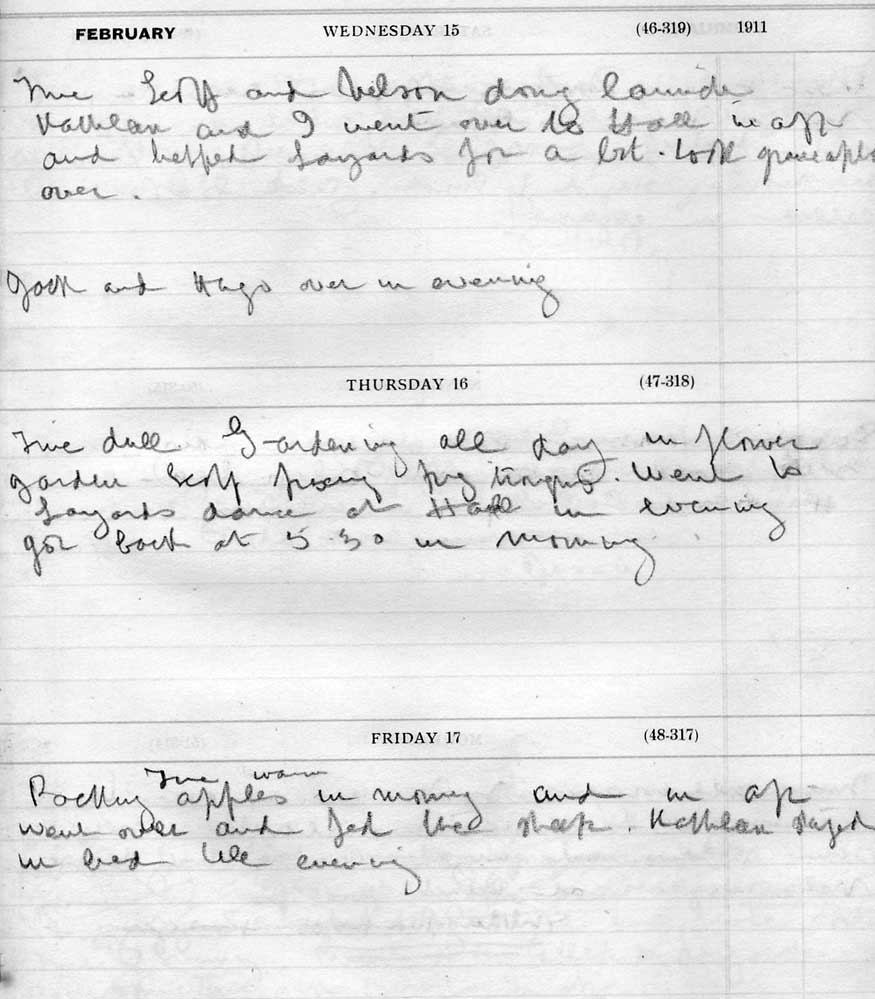 FEBRUARY WEDNESDAY 15 (46-319) 1911
Fine Scott and Wilson doing
Kathleen and I went over to Hall in aft
and helped Layards for a bit. Took
over.
Jack and Hugo over in evening
THURSDAY 16 (47-318)
Fine dull Gardening all day in flower
garden Scott fixing . Went to
Layards dance at Hall in evening
got back at 5.30 in morning.
FRIDAY 17 (48-317)
Fine warm
Packing apples in morning and in aft
went over and fed the sheep. Kathleen stayed
in bed till evening